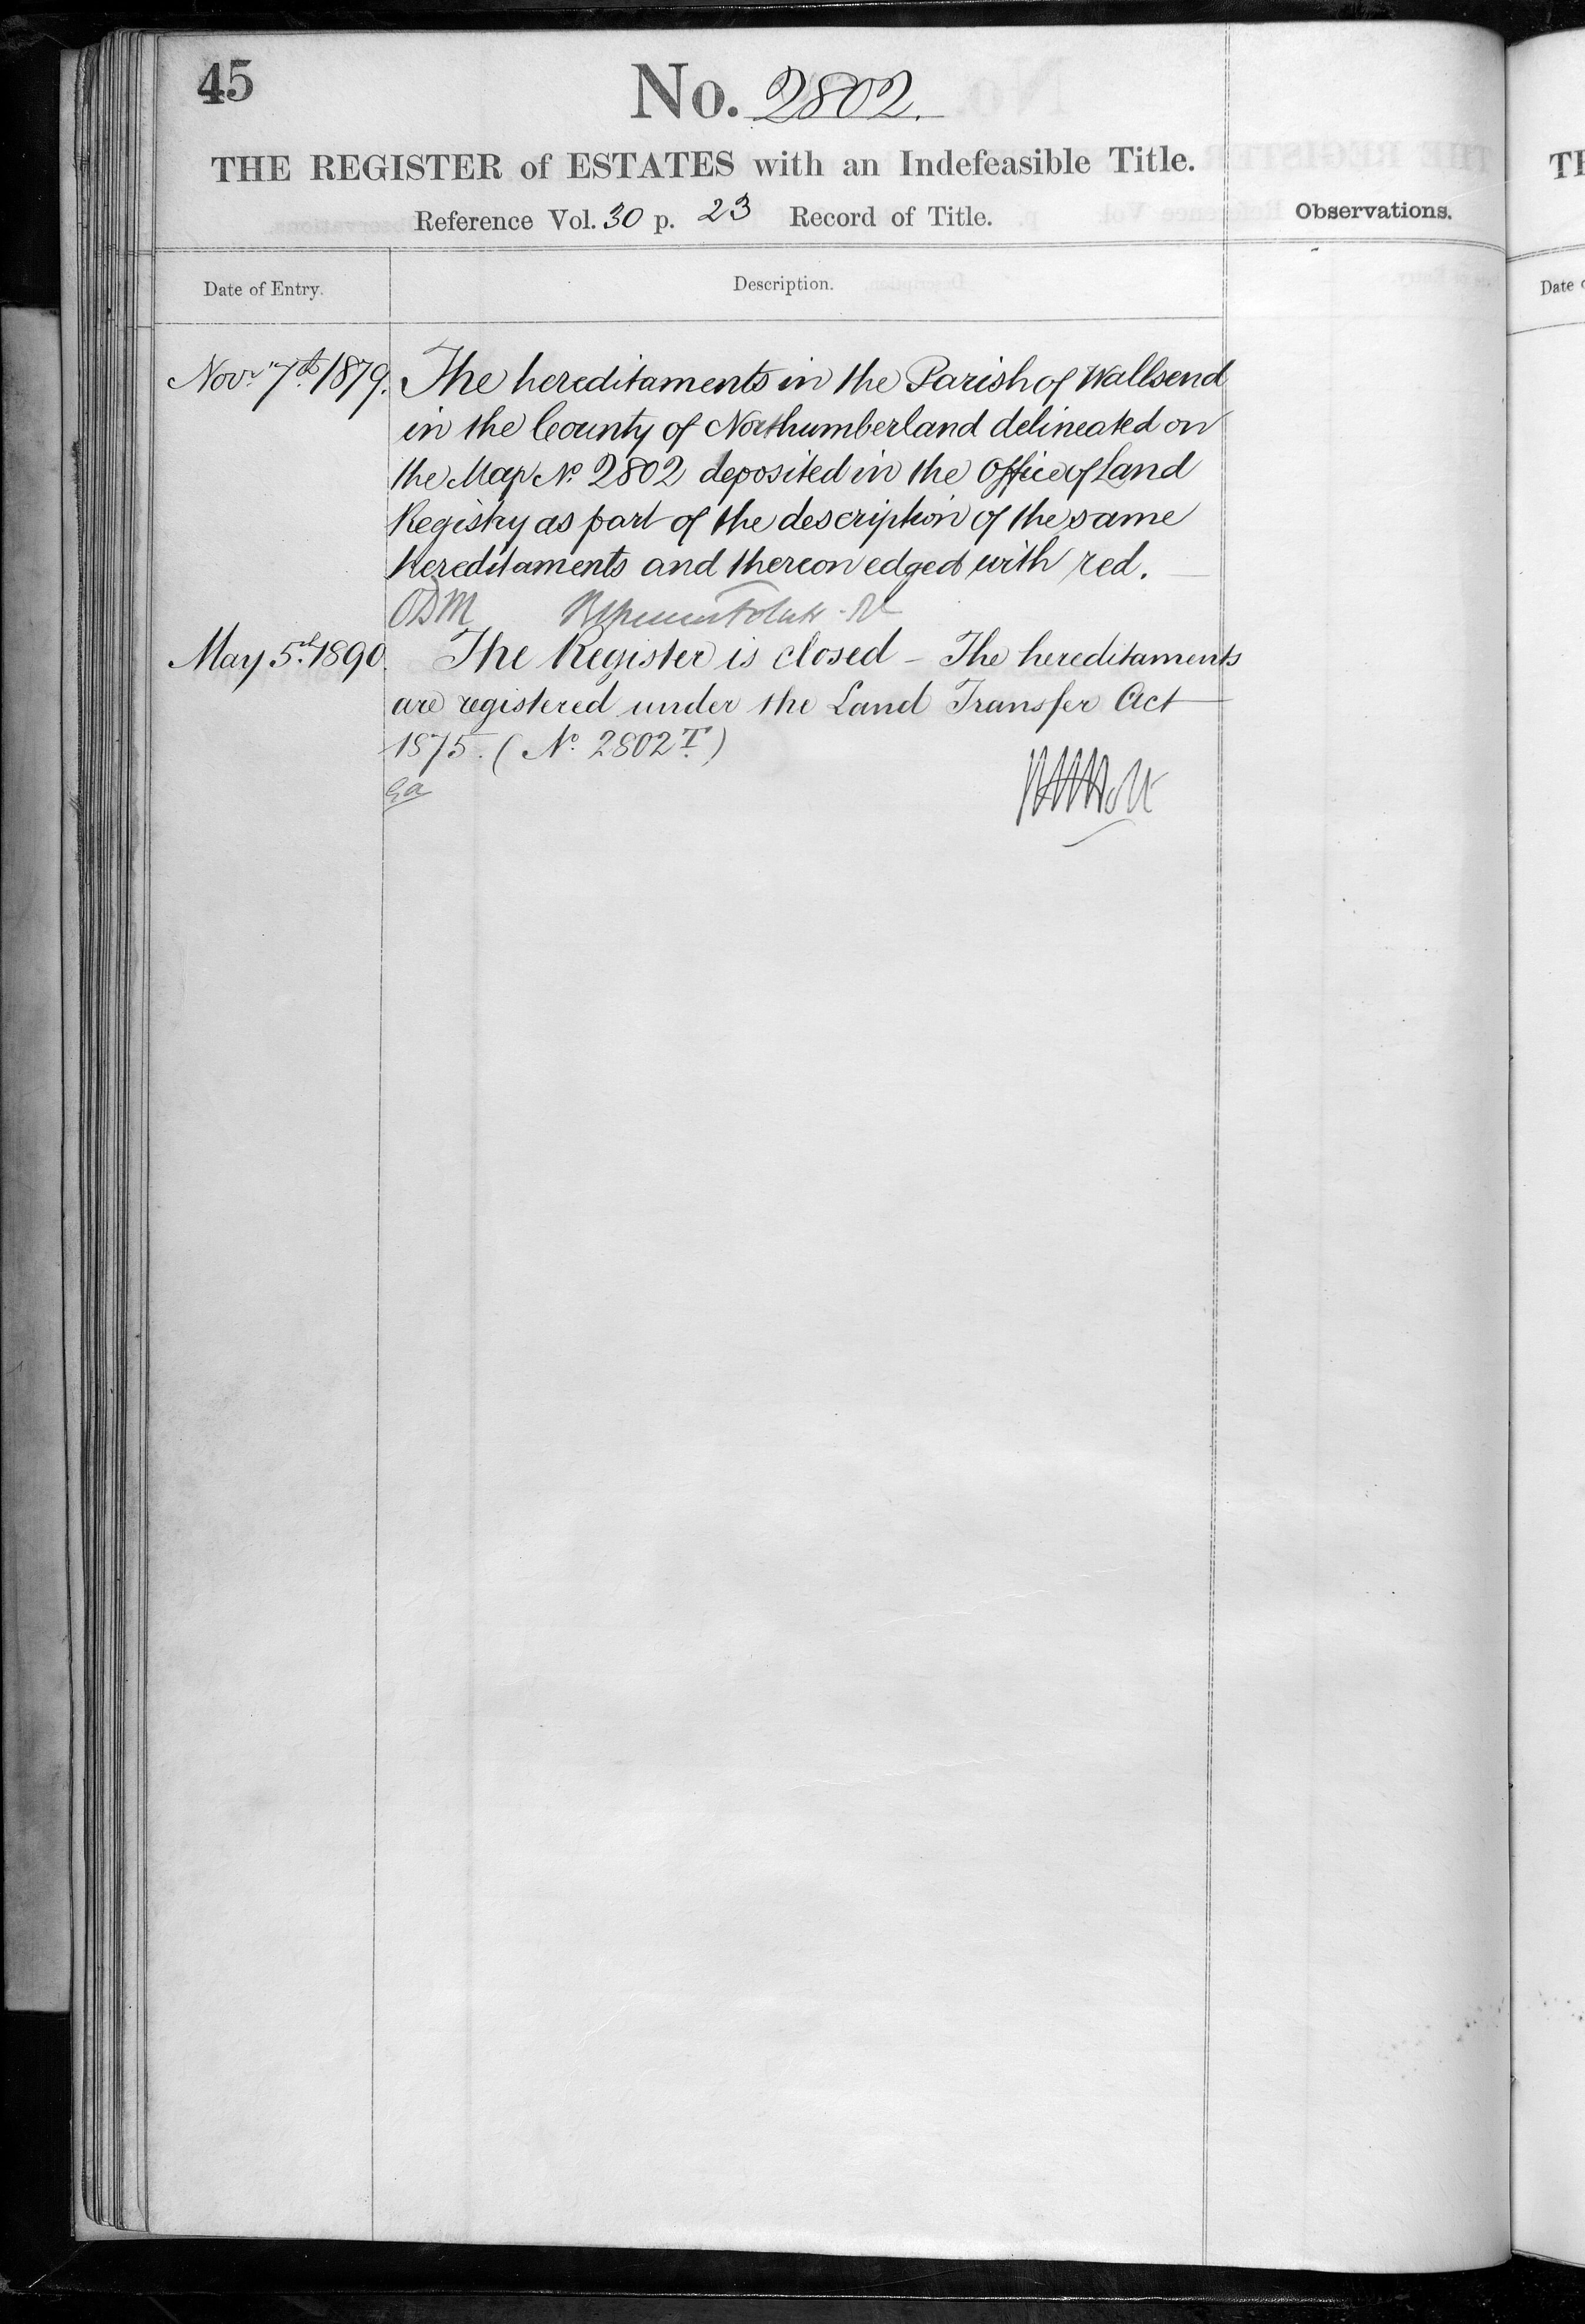 45
No. 2802.
THE REGISTER of ESTATES with an Indefeasible Title.
Reference Vol. 30 p. 23 Record of Title.
Observations.
Date of Entry.
Description.
Novr. 7th 1879. The hereditaments in the Parish of Wallsend
in the County of Northumberland delineated on
the Map No. 2802 deposited in the Office of Land
Registry as part of the description of the same
hereditaments and thereon edged with red.
ODM
May 5th 1890. The Register is closed – The hereditaments
are registered under the Land Transfer Act
1875. (No. 2802 T)
TH
Date o